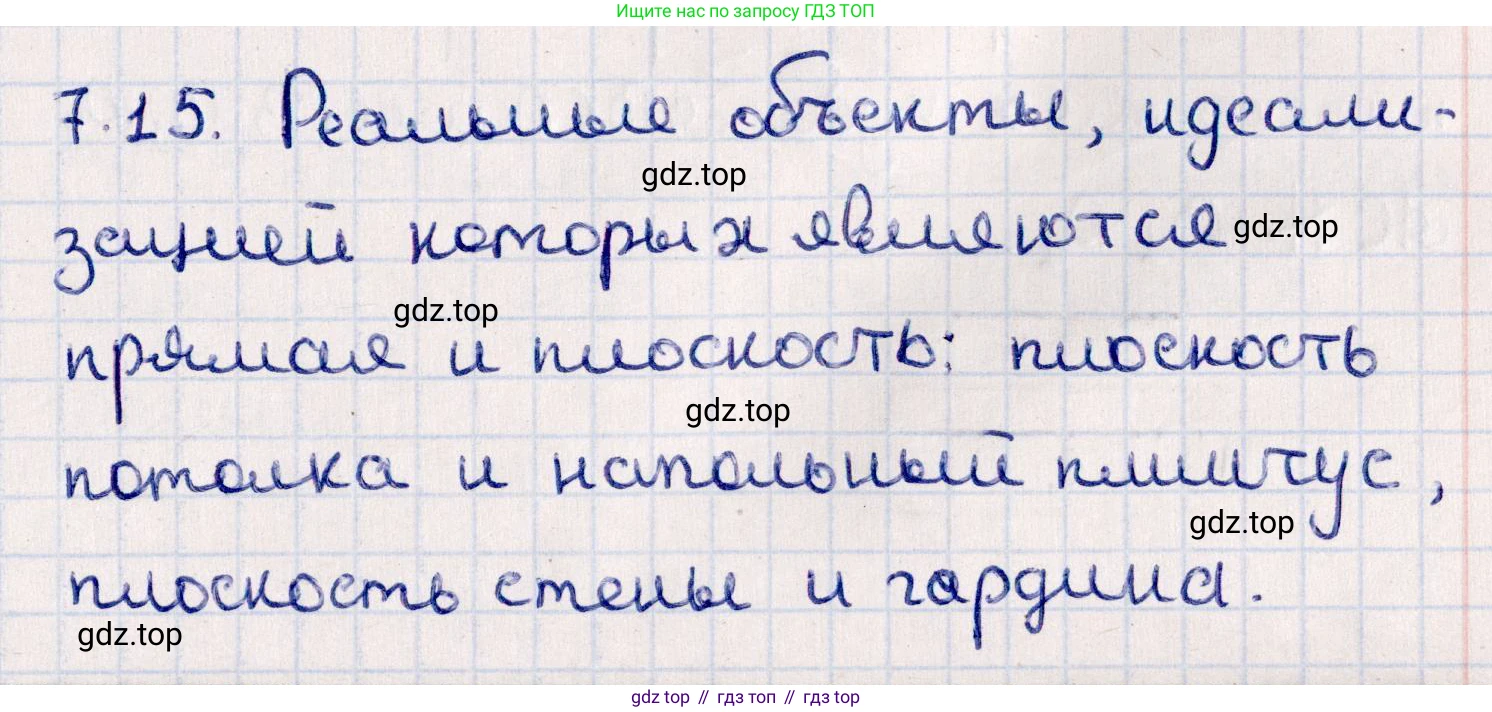 Ищите нас по запросу ГДЗ ТОП
7.15. Реальные объекты, идеали-
gdz.top
зацией которых являются gdz.top
gdz.top
прямая и плоскость: плоскость
gdz.top
потолка и напольный плинтус,
gdz.top
плоскость стены и гардина.
gdz.top
gdz top // гдз топ // гдз top